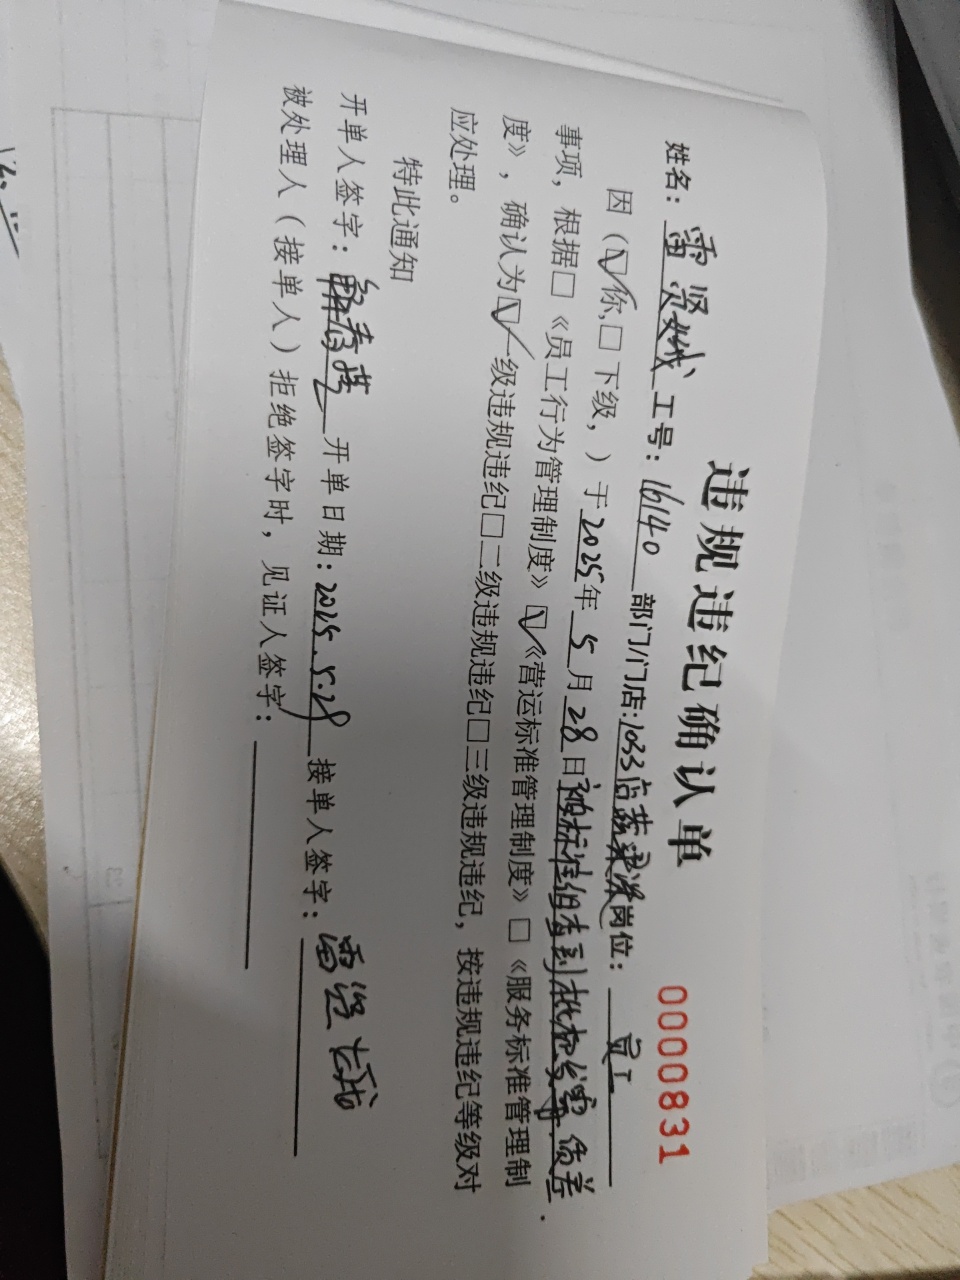 违规违纪确认单
0000831
姓名：雷贤娥 工号：16140 部门/门店：1033店蔬果课 岗位：员工
因（☑你，□下级，）于2025年5月28日被标准组查到批发部
事项，根据□《员工行为管理制度》☑《营运标准管理制度》□《服务标准管理制
度》，确认为☑一级违规违纪□二级违规违纪□三级违规违纪，按违规违纪等级对
应处理。
特此通知
开单人签字： 开单日期：2025.5.28 接单人签字：雷贤娥
被处理人（接单人）拒绝签字时，见证人签字：